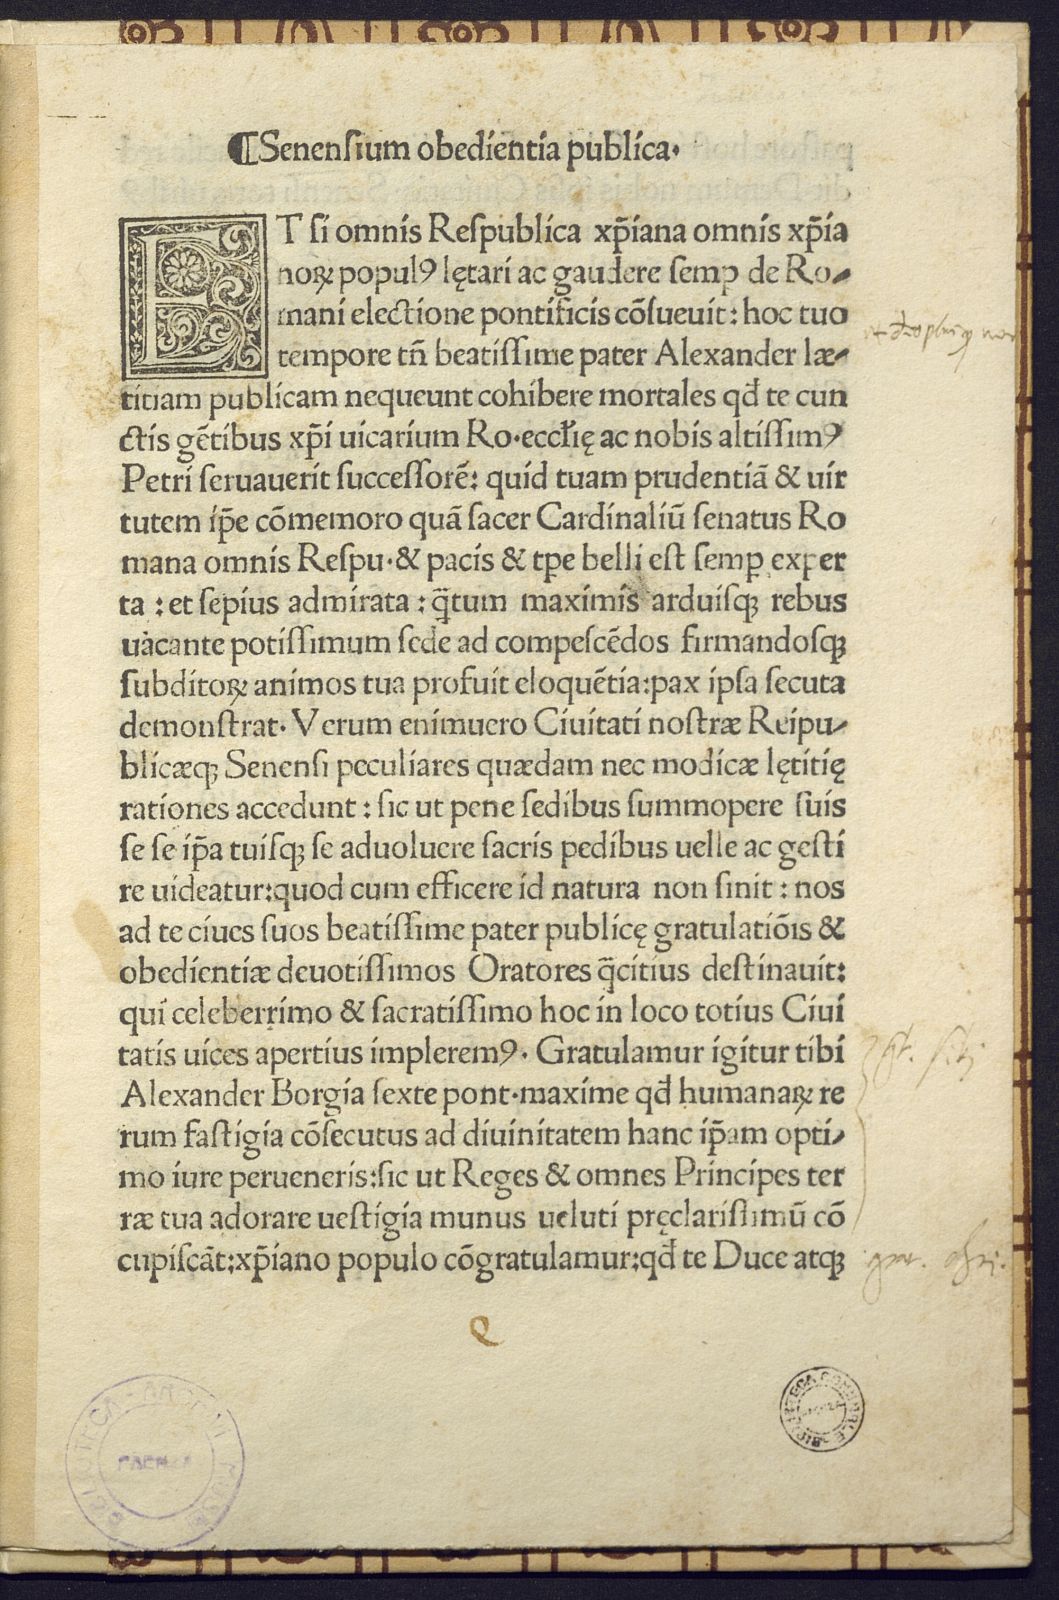 ¶Senensium obedientia publica.
ET si omnis Respublica xp̄iana omnis xp̄ia
noꝝ populꝰ lętari ac gaudere semp̱ de Ro-
mani electione pontificis cōsueuit: hoc tuo
tempore tn̄ beatissime pater Alexander læ-
titiam publicam nequeunt cohibere mortales qđ te cun
ctis gētibus xp̄i uicarium Ro.eccƚię ac nobis altissimꝰ
Petri seruauerit successorē: quid tuam prudentiā & uir
tutem ip̄e cōmemoro quā sacer Cardinaliū senatus Ro
mana omnis Respu.& pacis & tp̄e belli est semp̱ exper
ta : et sepius admirata : q̄tum maximis arduisqꝫ rebus
uacante potissimum sede ad compescēdos firmandosqꝫ
subditoꝝ animos tua profuit eloquētia:pax ipsa secuta
demonstrat. Verum enimuero Ciuitati nostræ Reipu-
blicæqꝫ Senensi peculiares quædam nec modicæ lętitię
rationes accedunt : sic ut pene sedibus summopere suis
se se ip̄a tuisqꝫ se aduoluere sacris pedibus uelle ac gesti
re uideatur:quod cum efficere id natura non sinit : nos
ad te ciues suos beatissime pater publicę gratulatiōis &
obedientiæ deuotissimos Oratores q̄citius destinauit:
qui celeberrimo & sacratissimo hoc in loco totius Ciui
tatis uices apertius impleremꝰ. Gratulamur igitur tibi
Alexander Borgia sexte pont.maxime qđ humanaꝝ re
rum fastigia cōsecutus ad diuinitatem hanc ip̄am opti-
mo iure perueneris:sic ut Reges & omnes Principes ter
ræ tua adorare uestigia munus ueluti pręclarissimū cō
cupiscāt:xp̄iano populo cōgratulamur:qđ te Duce atqꝫ